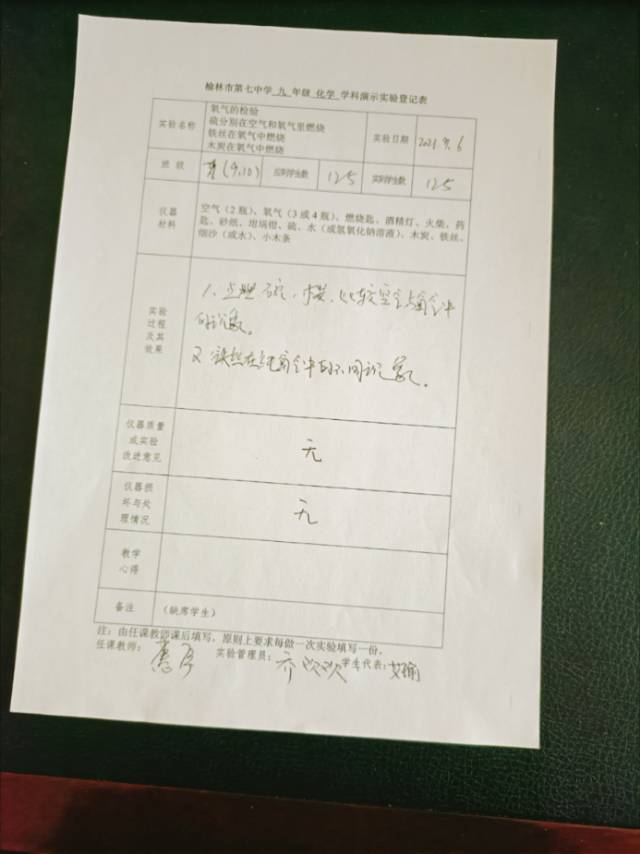 榆林市第七中学 九 年级 化学 学科演示实验登记表
实验名称
氧气的检验
硫分别在空气和氧气里燃烧
铁丝在氧气中燃烧
木炭在氧气中燃烧
实验日期
2021.9.6
班级
(9,10)
应到学生数
125
实到学生数
125
仪器
材料
空气(2瓶)、氧气(3或4瓶)、燃烧匙、酒精灯、火柴、药
匙、砂纸、坩埚钳、硫、水(或氢氧化钠溶液)、木炭、铁丝、
细沙(或水)、小木条
实验
过程
及其
效果
1. 点燃硫、木炭,比较空气与氧气中
的现象。
2. 铁丝在氧气中的不同现象。
仪器质量
或实验
改进意见
无
仪器损
坏与处
理情况
无
教学
心得
备注
(缺席学生)
注:由任课教师课后填写,原则上要求每做一次实验填写一份。
任课教师:
实验管理员:乔欢欢 学生代表: